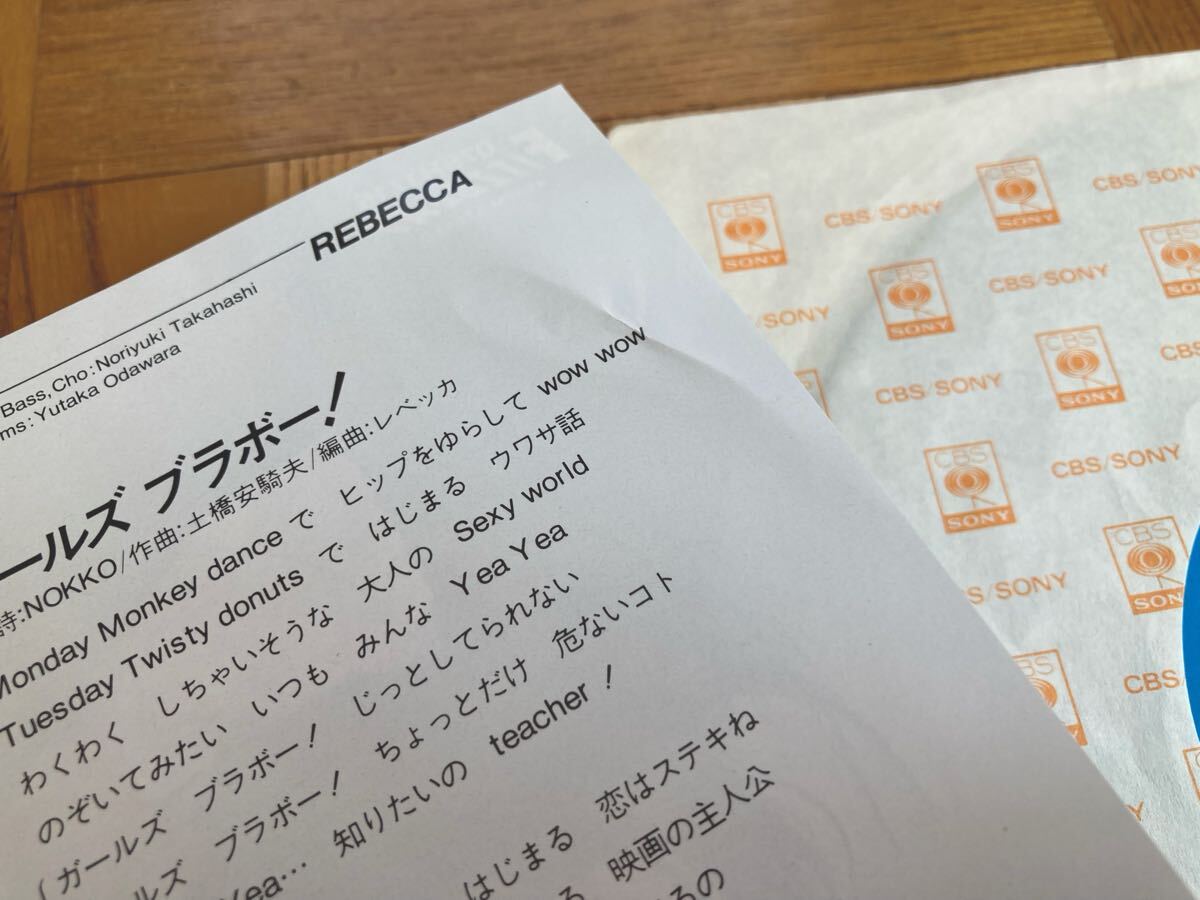 REBECCA
Bass, Cho:Noriyuki Takahashi
ms:Yutaka Odawara
ールズ ブラボー!
詩:NOKKO/作曲:土橋安騎夫/編曲:レベッカ
Monday Monkey dance で ヒップをゆらして wow wow
Tuesday Twisty donuts で はじまる ウワサ話
わくわく しちゃいそうな 大人の Sexy world
のぞいてみたい いつも みんな Yea Yea
(ガールズ ブラボー! じっとしてられない
ルズ ブラボー! ちょっとだけ 危ないコト
Yea… 知りたいの teacher!
はじまる 恋はステキね
る 映画の主人公
るの
CBS SONY
CBS/SONY
CBS SONY
CBS/SONY
CBS SONY
CBS/SONY
CBS SONY
CBS/SONY
CBS SONY
CBS/SONY
CBS SONY
CBS/SONY
CBS SONY
CBS/SONY
CBS
CBS/